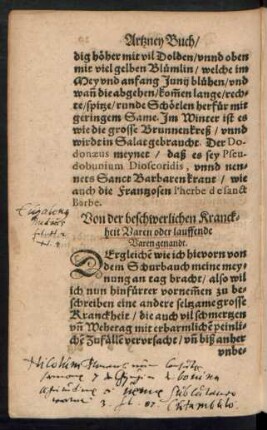 Artzney Buch/
dig höher mit vil Dolden/vnnd oben
mit viel gelben Blümlin/ welche im
Mey vnd anfang Junij blühen/ vnd
wañ die abgehen/ kom̃en lange/ rech-
te/ spitze/ runde Schötlen herfür mit
geringem Same. Im Winter ist es
wie die grosse Brunnenkreß/ vnnd
wirdt in Salat gebraucht. Der Do-
donæus meynet/ daß es sey Pseu-
dobunium Dioscoridis, vnnd nen-
nets Sanct Barbarenkraut/ wie
auch die Frantzosen l'herbe de sanct
Barbe.
Von der beschwerlichen Kranck-
heit Varen oder lauffende
Varen genandt.
DErgleichẽ wie ich hievorn von
dem Schurbauch meine mey-
nung an tag bracht/ also wil
ich nun hinfürter vornem̃en zu be-
schreiben eine andere seltzame grosse
Kranckheit/ die auch vil schmertzen
vñ Wehetag mit erbarmlichẽ peinli-
che Zufälle vervrsacht/ vñ biß anher
vnbe-